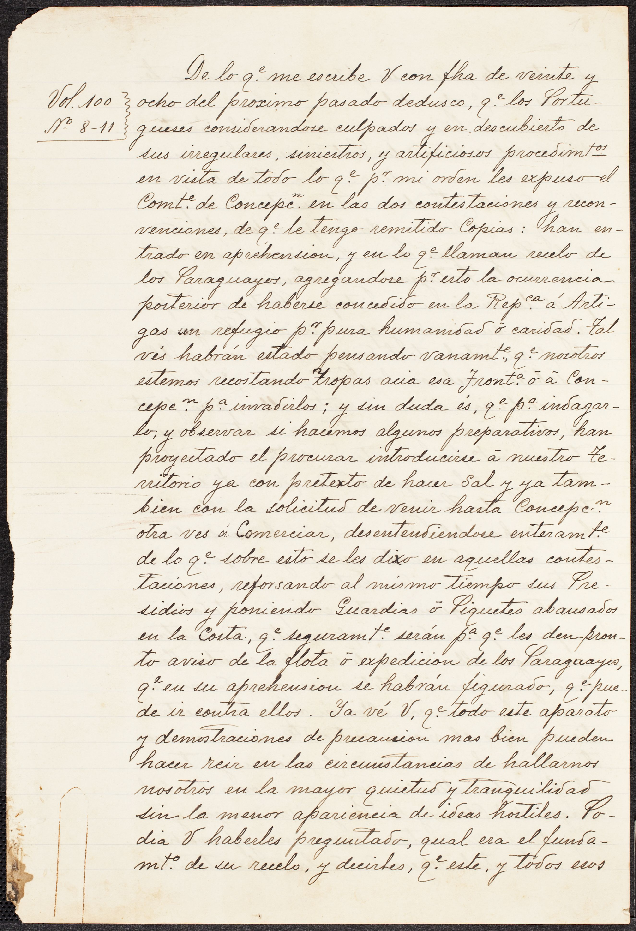 De lo q.e me escribe V con fha de veinte y
Vol. 100
Nº 8-11
ocho del proximo pasado dedusco, q.e los Portu-
gueses considerandose culpados y en descubierto de
sus irregulares, siniestros, y artificiosos procedim.tos
en vista de todo lo q.e p.r mi orden les expuso el
Comt.e de Concepc.n en las dos contestaciones y recon-
venciones, de q.e le tengo remitido Copias: han en-
trado en aprehension, y en lo q.e llaman recelo de
los Paraguayos, agregandose p.r esto la ocurrencia
posterior de haberse concedido en la Rep.ca á Arti-
gas un refugio p.r pura humanidad ó caridad. Tal
vés habrán estado pensando vanam.te, q.e nosotros
estemos recostando tropas acia esa Front.a ó á Con-
cepc.n p.a invadirlos; y sin duda és, q.e p.a indagar-
lo, y observar si hacemos algunos preparativos, han
proyectado el procurar introducirse á nuestro Te-
rritorio ya con pretexto de hacer Sal y ya tam-
bien con la solicitud de venir hasta Concepc.n
otra ves á Comerciar, desentendiendose enteram.te
de lo q.e sobre esto se les dixo en aquellas contes-
taciones, reforsando al mismo tiempo sus Pre-
sidios y poniendo Guardias ó Piquetes abansados
en la Costa, q.e seguram.te serán p.a q.e les den pron-
to aviso de la flota ó expedicion de los Paraguayos,
q.e en su aprehension se habrán figurado, q.e pue-
de ir contra ellos. Ya vé V, q.e todo este aparato
y demostraciones de precausion mas bien pueden
hacer reir en las circunstancias de hallarnos
nosotros en la mayor quietud y tranquilidad
sin la menor apariencia de ideas hostiles. Po-
dia V haberles preguntado, qual era el funda-
mt.o de su recelo, y decirles, q.e este, y todos esos